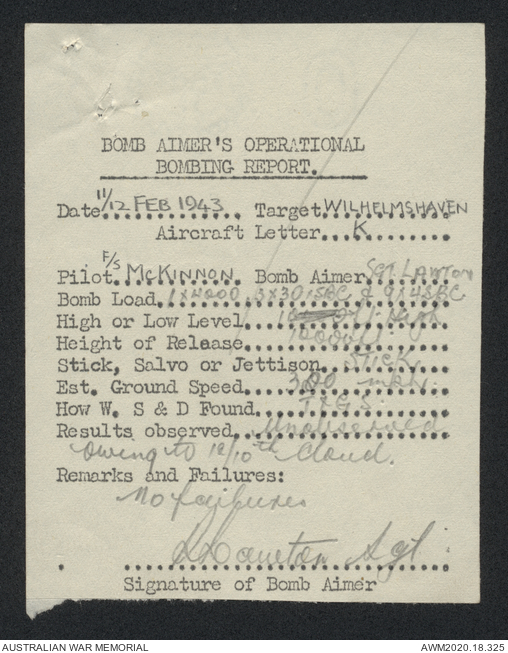 BOMB AIMER'S OPERATIONAL
BOMBING REPORT.
Date 11/12 FEB 1943 Target WILHELMSHAVEN
Aircraft Letter K
Pilot F/S McKINNON Bomb Aimer SGT. LAWTON
Bomb Load 1x4000 3x30 SBC & 9x4 SBC
High or Low Level High
Height of Release
Stick, Salvo or Jettison STICK
Est. Ground Speed 300 mph.
How W. S & D Found
Results observed Unobserved
owing to 10/10th cloud.
Remarks and Failures:
No failures
Lawton Sgt
Signature of Bomb Aimer
AUSTRALIAN WAR MEMORIAL
AWM2020.18.325